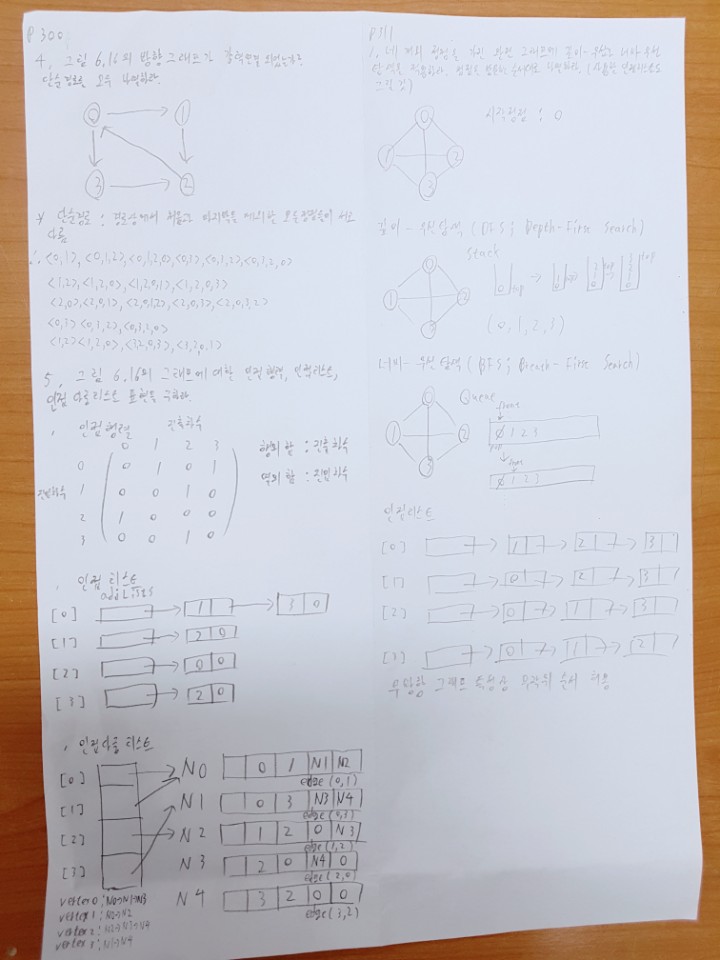 P 300
4. 그림 6.16의 방향 그래프가 강력연결 되었는가?
단순경로를 모두 나열하라.
0 1
3 2
* 단순경로 : 경로상에서 처음과 마지막을 제외한 모든 정점들이 서로
다름
∴ <0,1>, <0,1,2>, <0,1,2,0> <0,3>, <0,3,2>, <0,3,2,0>
<1,2>, <1,2,0>, <1,2,0,1>, <1,2,0,3>
<2,0>, <2,0,1>, <2,0,1,2>, <2,0,3>, <2,0,3,2>
<0,3> <0,3,2>, <0,3,2,0>
<3,2,0,3>, <3,2,0,1>
5. 그림 6.16의 그래프에 대한 인접 행렬, 인접리스트,
인접 다중리스트 표현을 구하라.
. 인접행렬 진출차수
0 1 2 3
0 0 1 0 1
1 0 0 1 0
2 1 0 0 0
3 0 0 1 0
행의 합 : 진출차수
열의 합 : 진입차수
. 인접 리스트
adjLists
[0] 1 3 0
[1] 2 0
[2] 0 0
[3] 2 0
. 인접다중 리스트
[0] N0 0 1 N1 N2
edge (0,1)
[1] N1 0 3 N3 N4
edge (0,3)
[2] N2 1 2 0 N3
edge (1,2)
[3] N3 2 0 N4 0
edge (2,0)
N4 3 2 0 0
edge (3,2)
vertex 0 : N0→N1→N3
vertex 1 : N0→N2
vertex 2 : N2→N3→N4
vertex 3 : N1→N4
P311
1. 네 개의 정점을 가진 완전 그래프에 깊이-우선과 너비-우선
탐색을 적용하라. 정점을 방문한 순서대로 나열하라. (사용한 인접리스트도
그릴 것)
0
1 2
3
시작정점 : 0
깊이-우선탐색 (DFS ; Depth-First Search)
0
1 2
3
stack
0 top
1 0 top
2 1 0 top
3 2 1 0 top
(0, 1, 2, 3)
너비-우선탐색 (BFS ; Breath-First Search)
0
1 2
3
Queue
front
0 1 2 3
front
0 1 2 3
인접리스트
[0] 1 2 3
[1] 0 2 3
[2] 0 1 3
[3] 0 1 2
무방향 그래프 특성상